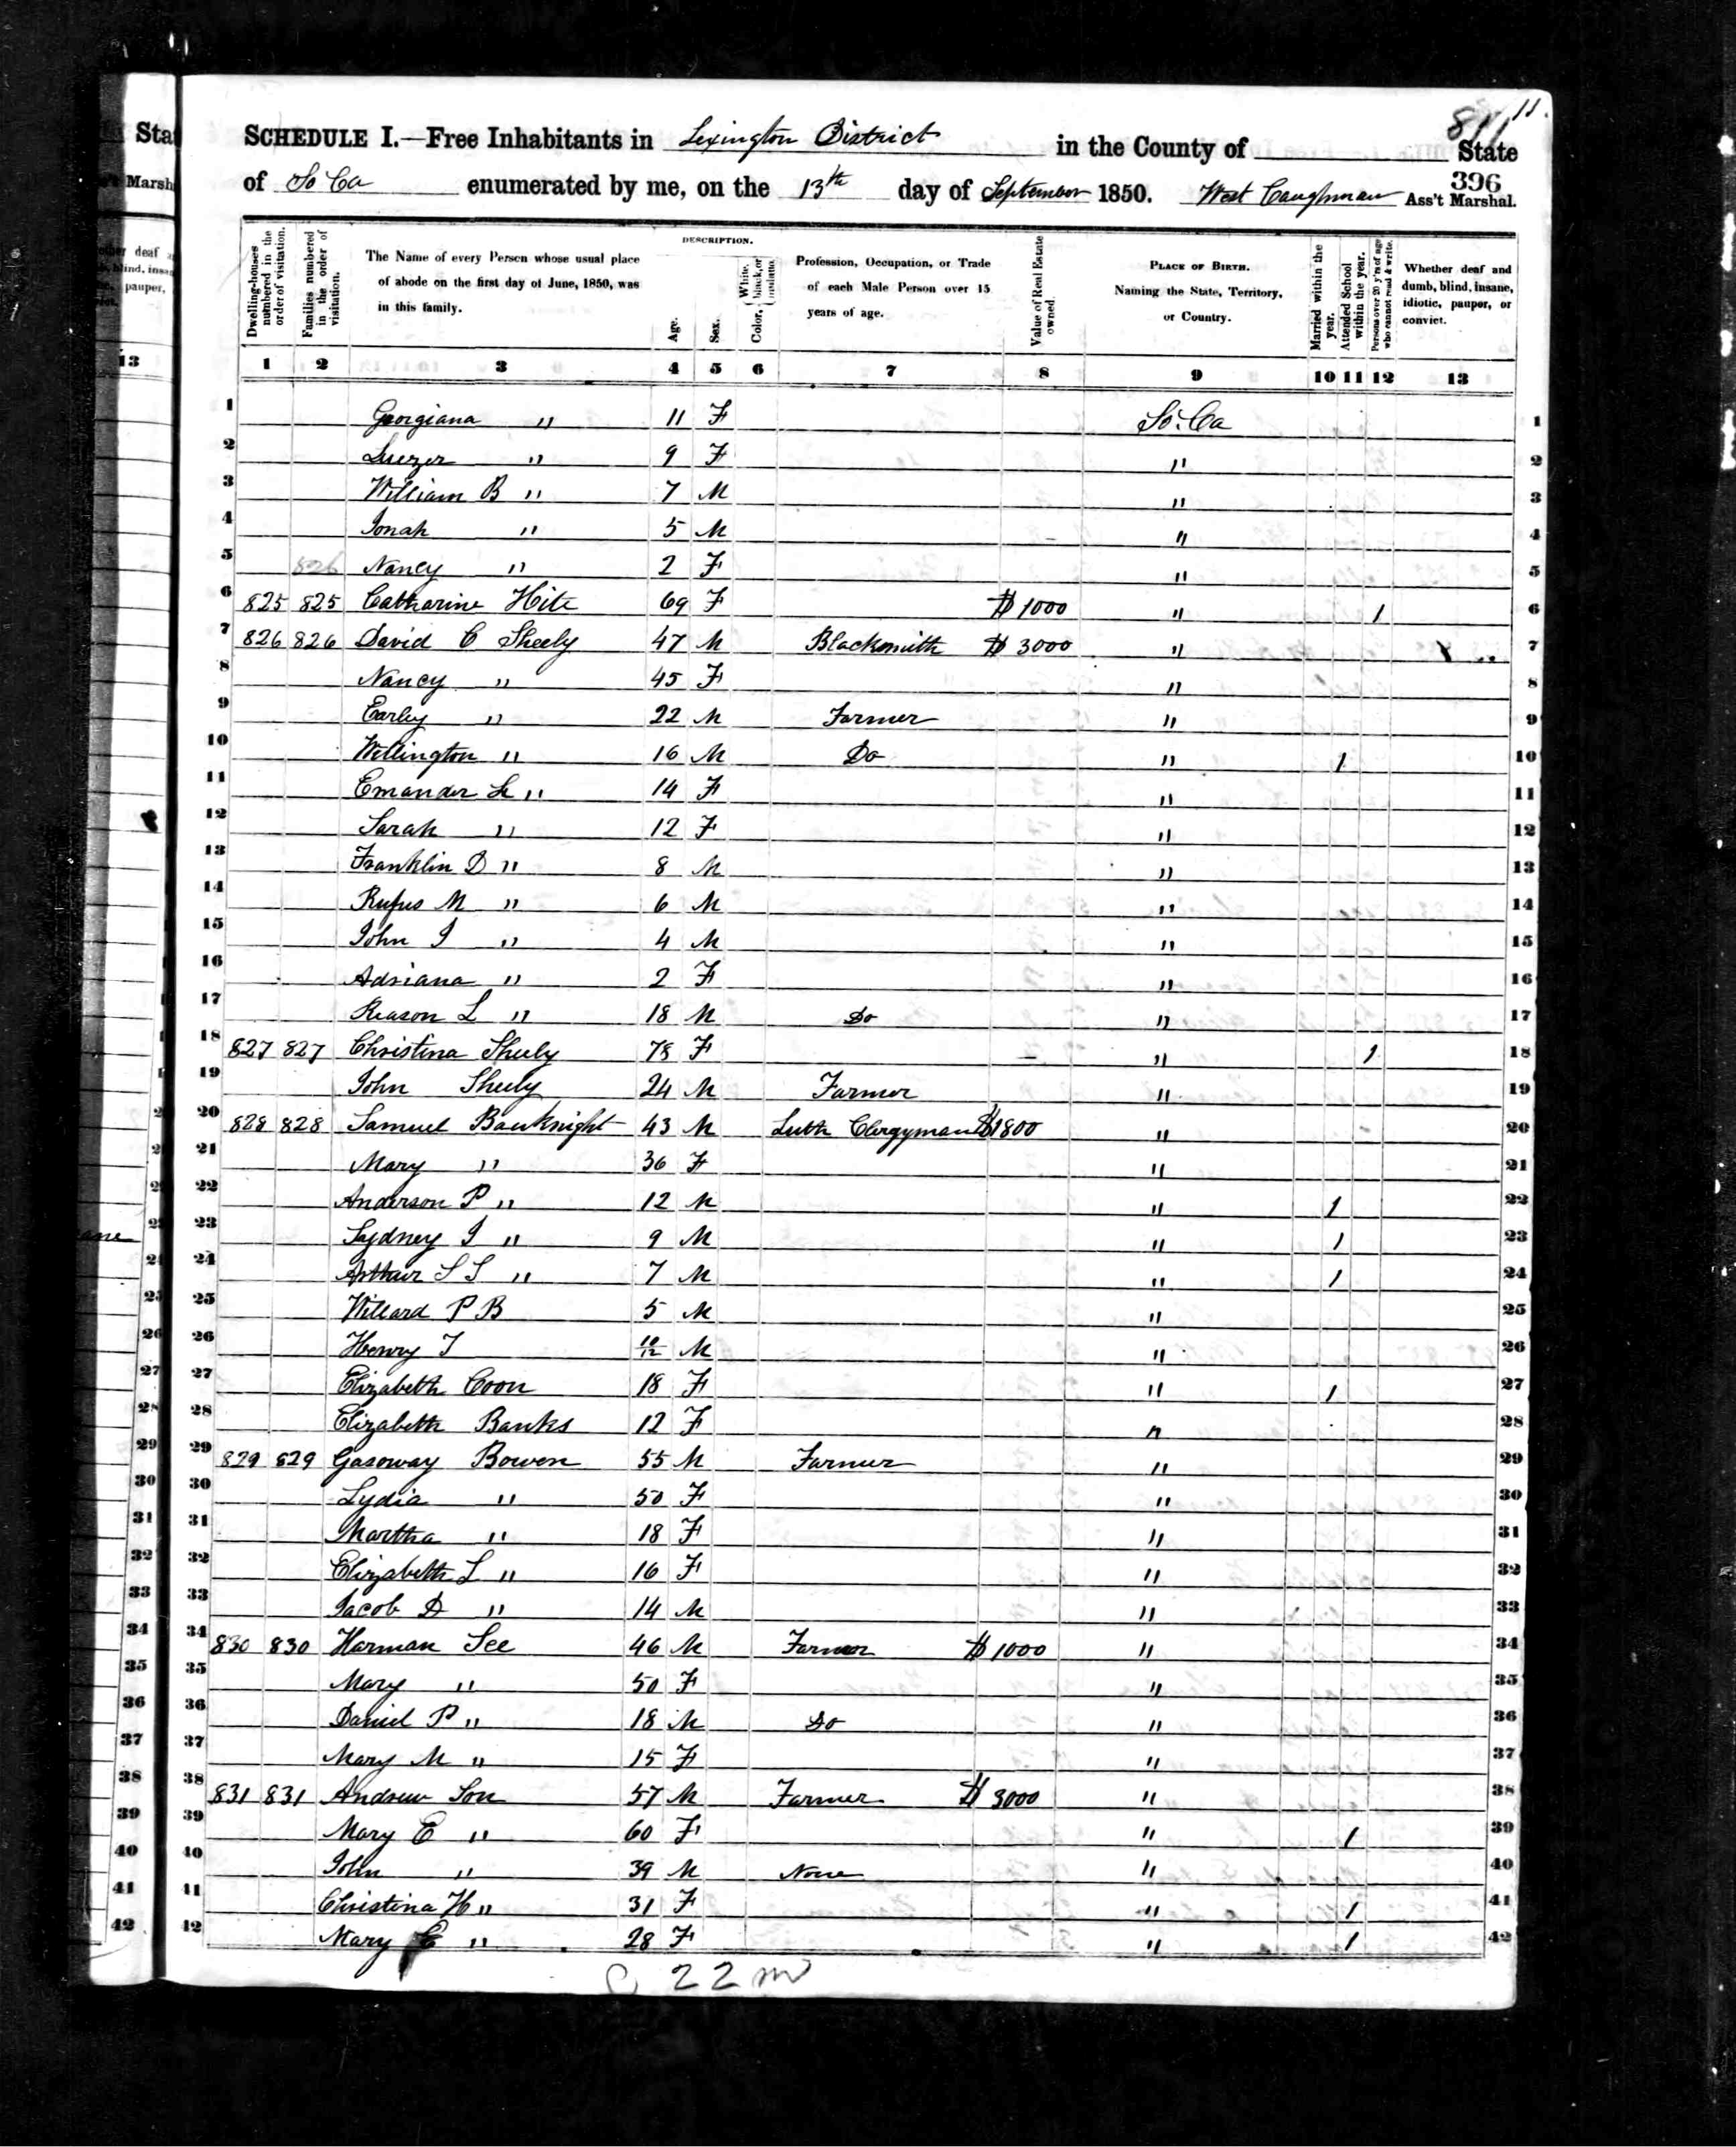 811 11.
SCHEDULE I.—Free Inhabitants in Lexington District in the County of State
of So Ca enumerated by me, on the 13th day of September 1850. West Caughman Ass't Marshal.
396
Dwelling-houses numbered in the order of visitation.
Families numbered in the order of visitation.
The Name of every Person whose usual place of abode on the first day of June, 1850, was in this family.
DESCRIPTION.
Age.
Sex.
Color, White, black, or mulatto.
Profession, Occupation, or Trade of each Male Person over 15 years of age.
Value of Real Estate owned.
PLACE OF BIRTH. Naming the State, Territory, or Country.
Married within the year.
Attended School within the year.
Persons over 20 y'rs of age who cannot read & write.
Whether deaf and dumb, blind, insane, idiotic, pauper, or convict.
1 2 3 4 5 6 7 8 9 10 11 12 13
1 Georgiana " 11 F So. Ca 1
2 " 9 F " 2
3 William B " 7 M " 3
4 Jonah " 5 M " 4
5 826 Nancy " 2 F " 5
6 825 825 Catharine Hite 69 F $ 1000 " 1 6
7 826 826 David C Sheely 47 M Blacksmith $ 3000 " 7
8 Nancy " 45 F " 8
9 Earley " 22 M Farmer " 9
10 Wellington " 16 M Do " 1 10
11 Emander " 14 F " 11
12 Sarah " 12 F " 12
13 Franklin D " 8 M " 13
14 Rufus M " 6 M " 14
15 John J " 4 M " 15
16 Adriana " 2 F " 16
17 Reason L " 18 M Do " 17
18 827 827 Christina Sheely 78 F " 1 18
19 John Sheely 24 M Farmer " 19
20 828 828 Samuel Bouknight 43 M Luth Clergyman $1800 " 20
21 Mary " 36 F " 21
22 Anderson P " 12 M " 1 22
23 Sydney J " 9 M " 1 23
24 Arthur S S " 7 M " 1 24
25 Willard P B 5 M " 25
26 Henry T 10/12 M " 26
27 Elizabeth Coon 18 F " 1 27
28 Elizabeth Banks 12 F " 28
29 829 829 Gasoway Bowen 55 M Farmer " 29
30 Lydia " 50 F " 30
31 Martha " 18 F " 31
32 Elizabeth L " 16 F " 32
33 Jacob D " 14 M " 33
34 830 830 Harman See 46 M Farmer $ 1000 " 34
35 Mary " 50 F " 35
36 Daniel P " 18 M Do " 36
37 Mary M " 15 F " 37
38 831 831 Andrew Son 57 M Farmer $ 3000 " 38
39 Mary E " 60 F " 1 39
40 John " 39 M None " 40
41 Christina H " 31 F " 1 41
42 Mary E " 28 F " 1 42
22 m